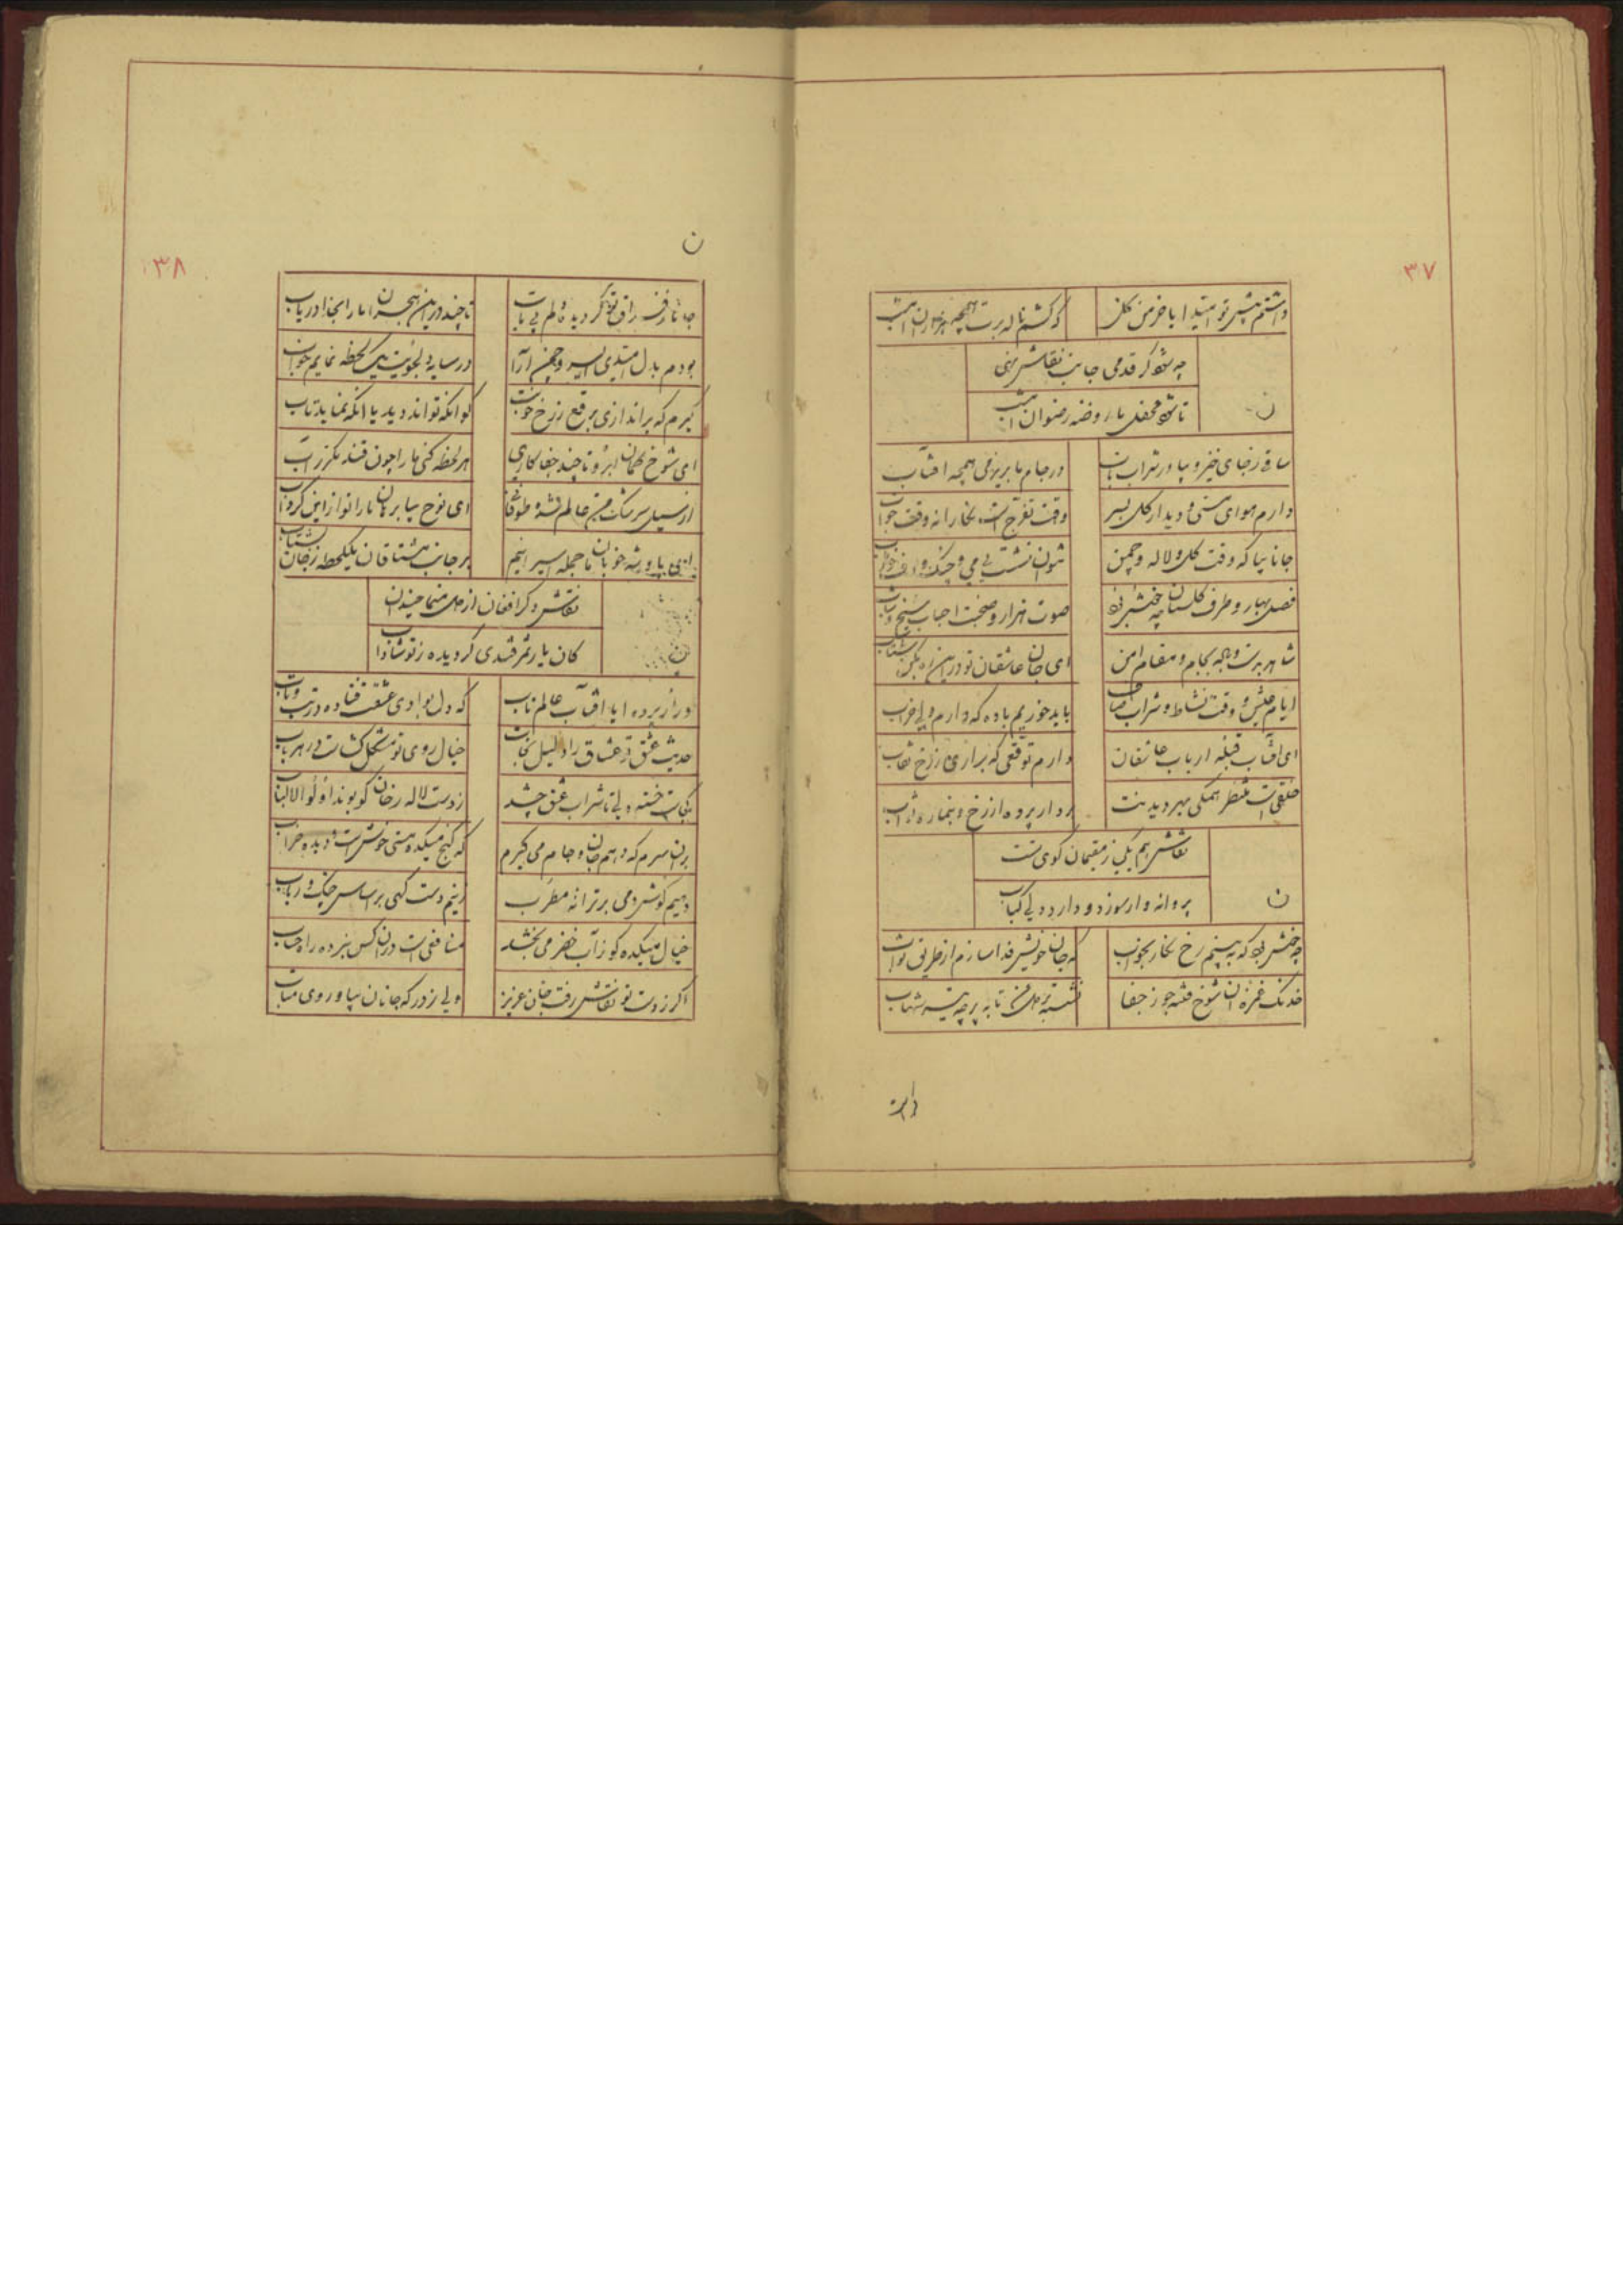 ۳۷
داشتم پیش تو امید ایا خرمن گل که کشم ناله برت همچو هزاران امشب
چه شود گر قدمی جانب نقاش نهی
ن
تا شود محفل ما روضه رضوان امشب
ساقی ز جای خیز و بیاور شراب ناب در جام ما بریز می همچو افتاب
دارم هوای مستی و دیدار گل بسر وقت تفرج است نگارا نه وقت خواب
جانا بیا که وقت گل و لاله و چمن نتوان نشست بی می و چنگ و
فصل بهار و طرف گلستان چه خوش بود صوت هزار و صحبت احباب
شاهد برت و باده بجام و مقام امن ای جان عاشقان تو درین ره مکن شتاب
ایام عیش و وقت نشاط و شراب باید خوریم باده که دارم دلی خراب
ای افتاب قبله ارباب عاشقان دارم توقعی که براری ز رخ نقاب
خلقی است منتظر همگی بهر دیدنت بردار پرده از رخ و بنما
نقاش هم یکی ز مقیمان کوی تست
ن
پروانه وار سوزد و دارد دلی کباب
چه خوش بود که ببینم رخ نگار بخواب که جان خویش فدا سازم از طریق ثواب
خدنگ غمزه ان شوخ فتنه جو ز جفا نشسته بر دل من تا به پر چه تیر شهاب
۳۸
ن
جانا ز فراق تو گردید دلم بی تاب تا چند درین هجران ما را بخدا دریاب
بودم بدل امیدی ای سرو چمن ارا در سایه دلجویت یک لحظه نمایم خواب
گیرم که براندازی برقع ز رخ خوبت کو انکه تواند دید یا انکه نماید تاب
ای شوخ کمان ابرو تا چند جفا کاری هر لحظه کشی ما را چون قند مکرر اب
از سیل سرشک من عالم شده طوفان ای نوح بیا برهان ما را تو از این گرداب
ای پادشه خوبان ما جمله اسیرانیم بر جانب مشتاقان یک لحظه ز جان بشتاب
نقاش دگر افغان از دل منما چندان
ن
کان یار سمرقندی گردیده ز تو شاداب
درا ز پرده ایا افتاب عالم تاب که دل بوادی عشقت فتاده در تب و تاب
حدیث عشق تو عشاق را دلیل نجات خیال روی تو مشکل گشاست در هر باب
کجاست خسته دلی تا شراب عشق چشد ز دست لاله رخان کو بوند اولوا الالباب
بران سرم که دهم جان و جام می گیرم که کنج میکده مستی خوش است و دیده خراب
دهیم گوش دمی بر ترانه مطرب زنیم دست گهی بر اساس چنگ و رباب
خیال میکده کو ز آب خضر می بخشد منافقی است در ان کس نبرده راه صواب
اگر ز دست تو نقاش رفت جان عزیز ولی ز درگه جانان بیا و روی متاب